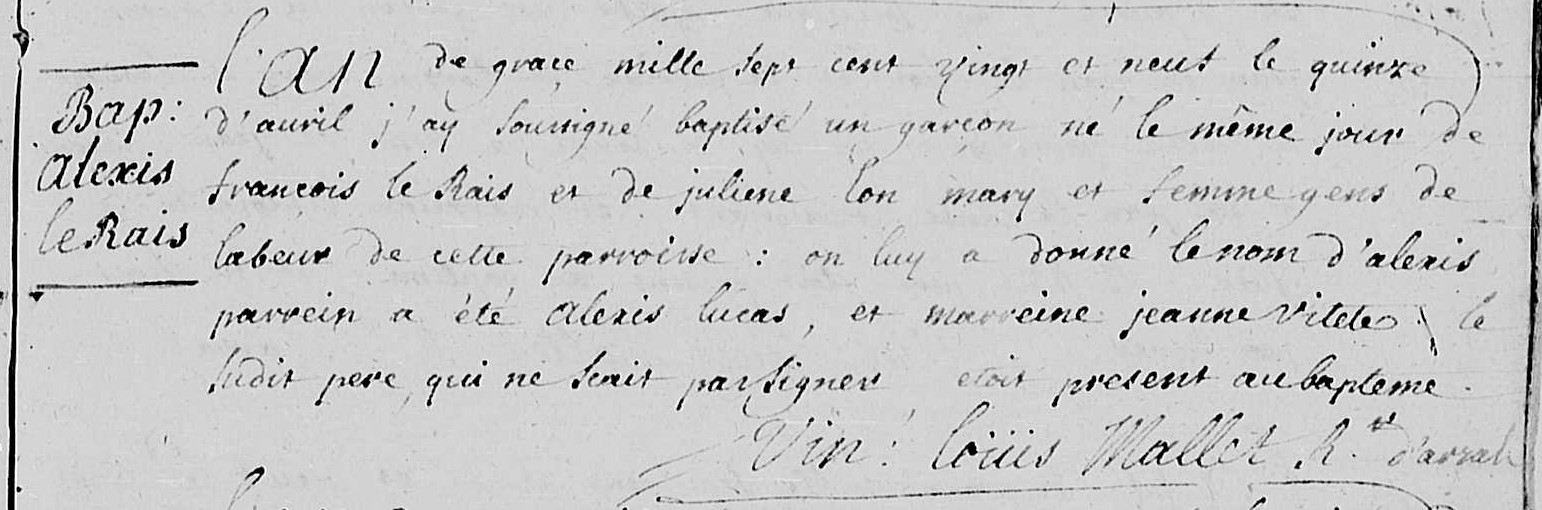 Bap:
Alexis
le Rais
l'an de grace mille sept cent vingt et neuf le quinze
d'auril j'ay soussigné baptisé un garcon né le même jour de
francois le Rais et de juliene lon mary et femme gens de
labeur de cette parroisse : on luy a donné le nom d'alexis
parrein a été Alexis lucas, et marreine jeanne vitele le
sudit pere, qui ne scait pas signer etoit present au bapteme.
Vin: loüis Mallet R.r d'arzal